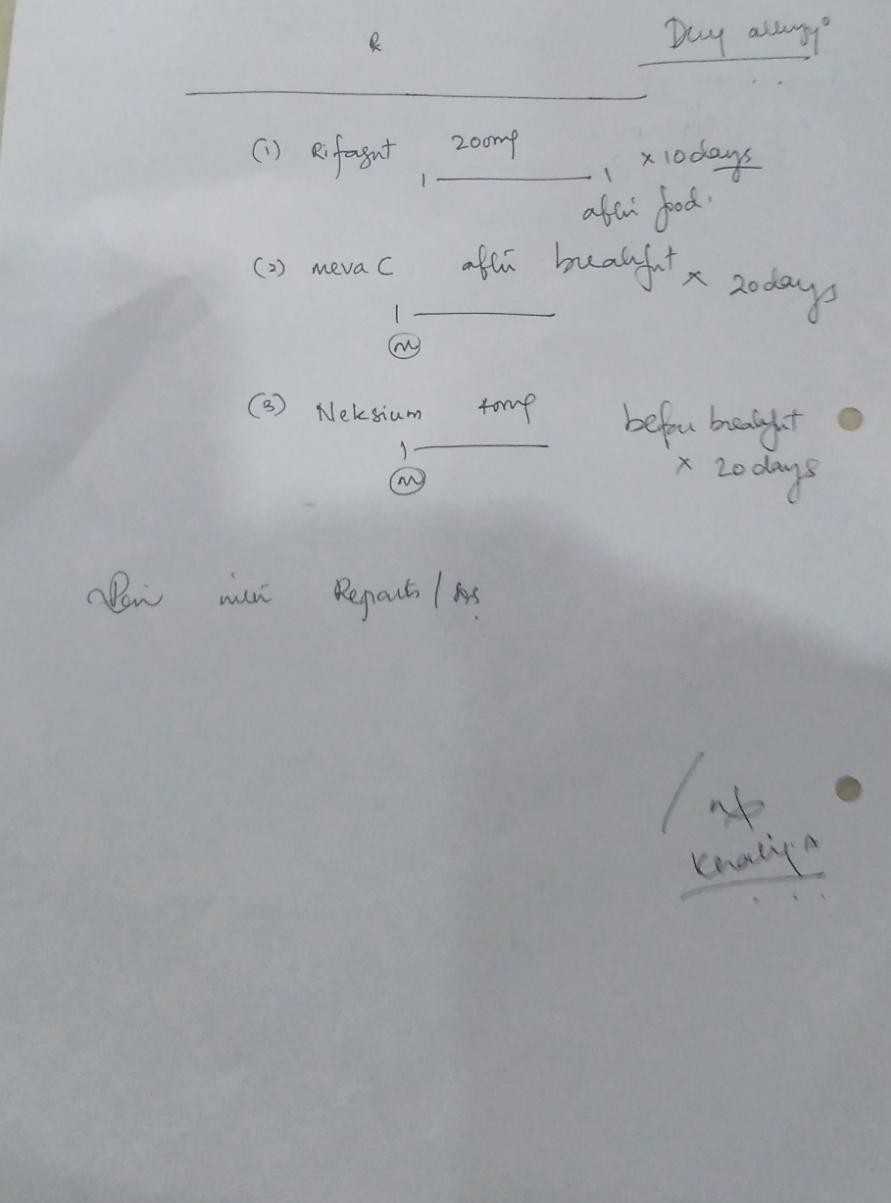 R Drug allergy?
(1) Rifagut 200mg 1 — 1 x 10 days
after food.
(2) meva C after breakfast x 20 days
1 —
M
(3) Neksium 40mg before breakfast
1 — x 20 days
M
Reports /